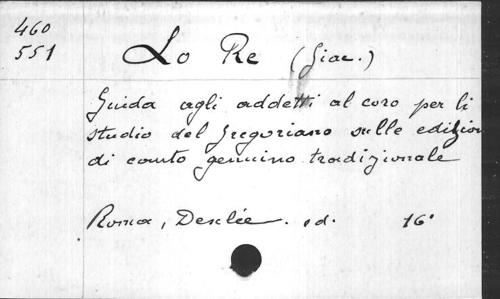 460
551
Lo Re (Giac.)
Guida agli addetti al coro per li
studio del gregoriano sulle edizion
di canto genuino tradizionale
Roma, Desclée. ed. 16°